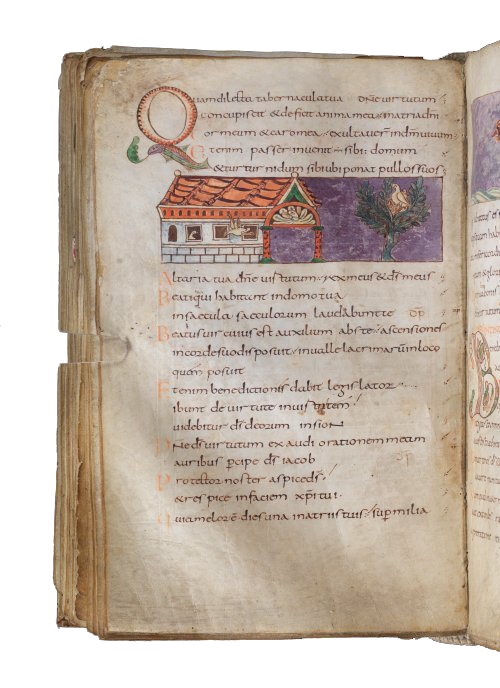 Quam dilecta tabernacula tua dne virtutum
concupiscit & deficit anima mea in atria dni
cor meum & caro mea exultaver in dm vivum
Etenim passer invenit sibi domum
& turtur nidum sibi ubi ponat pullos suos
Altaria tua dne virtutum rex meus & ds meus
Beati qui habitant in domo tua
in saecula saeculorum laudabunt te
Beatus vir cuius est auxilium abs te ascensiones
in corde suo disposuit in valle lacrimarum in loco
quem posuit
Etenim benedictiones dabit legislator
ibunt de virtute in virtutem
videbitur ds deorum in sion
Dne ds virtutum exaudi orationem meam
auribus pcipe ds iacob
Protector noster aspice ds
& respice in faciem xpi tui
Quia melior e dies una in atriis tuis sup milia